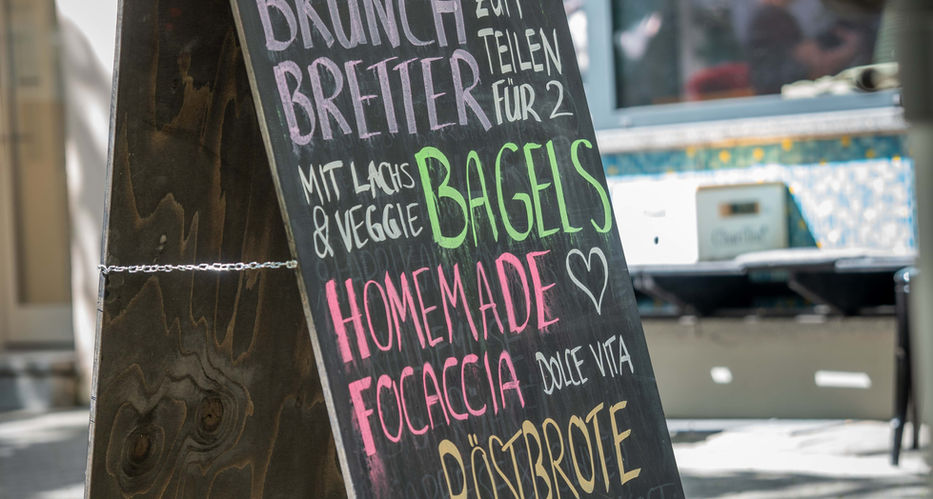 BRUNCH
BRETTER
ZUM
TEILEN
FÜR 2
MIT LACHS
& VEGGIE
BAGELS
HOMEMADE
FOCACCIA
DOLCE VITA
RÖSTBROTE